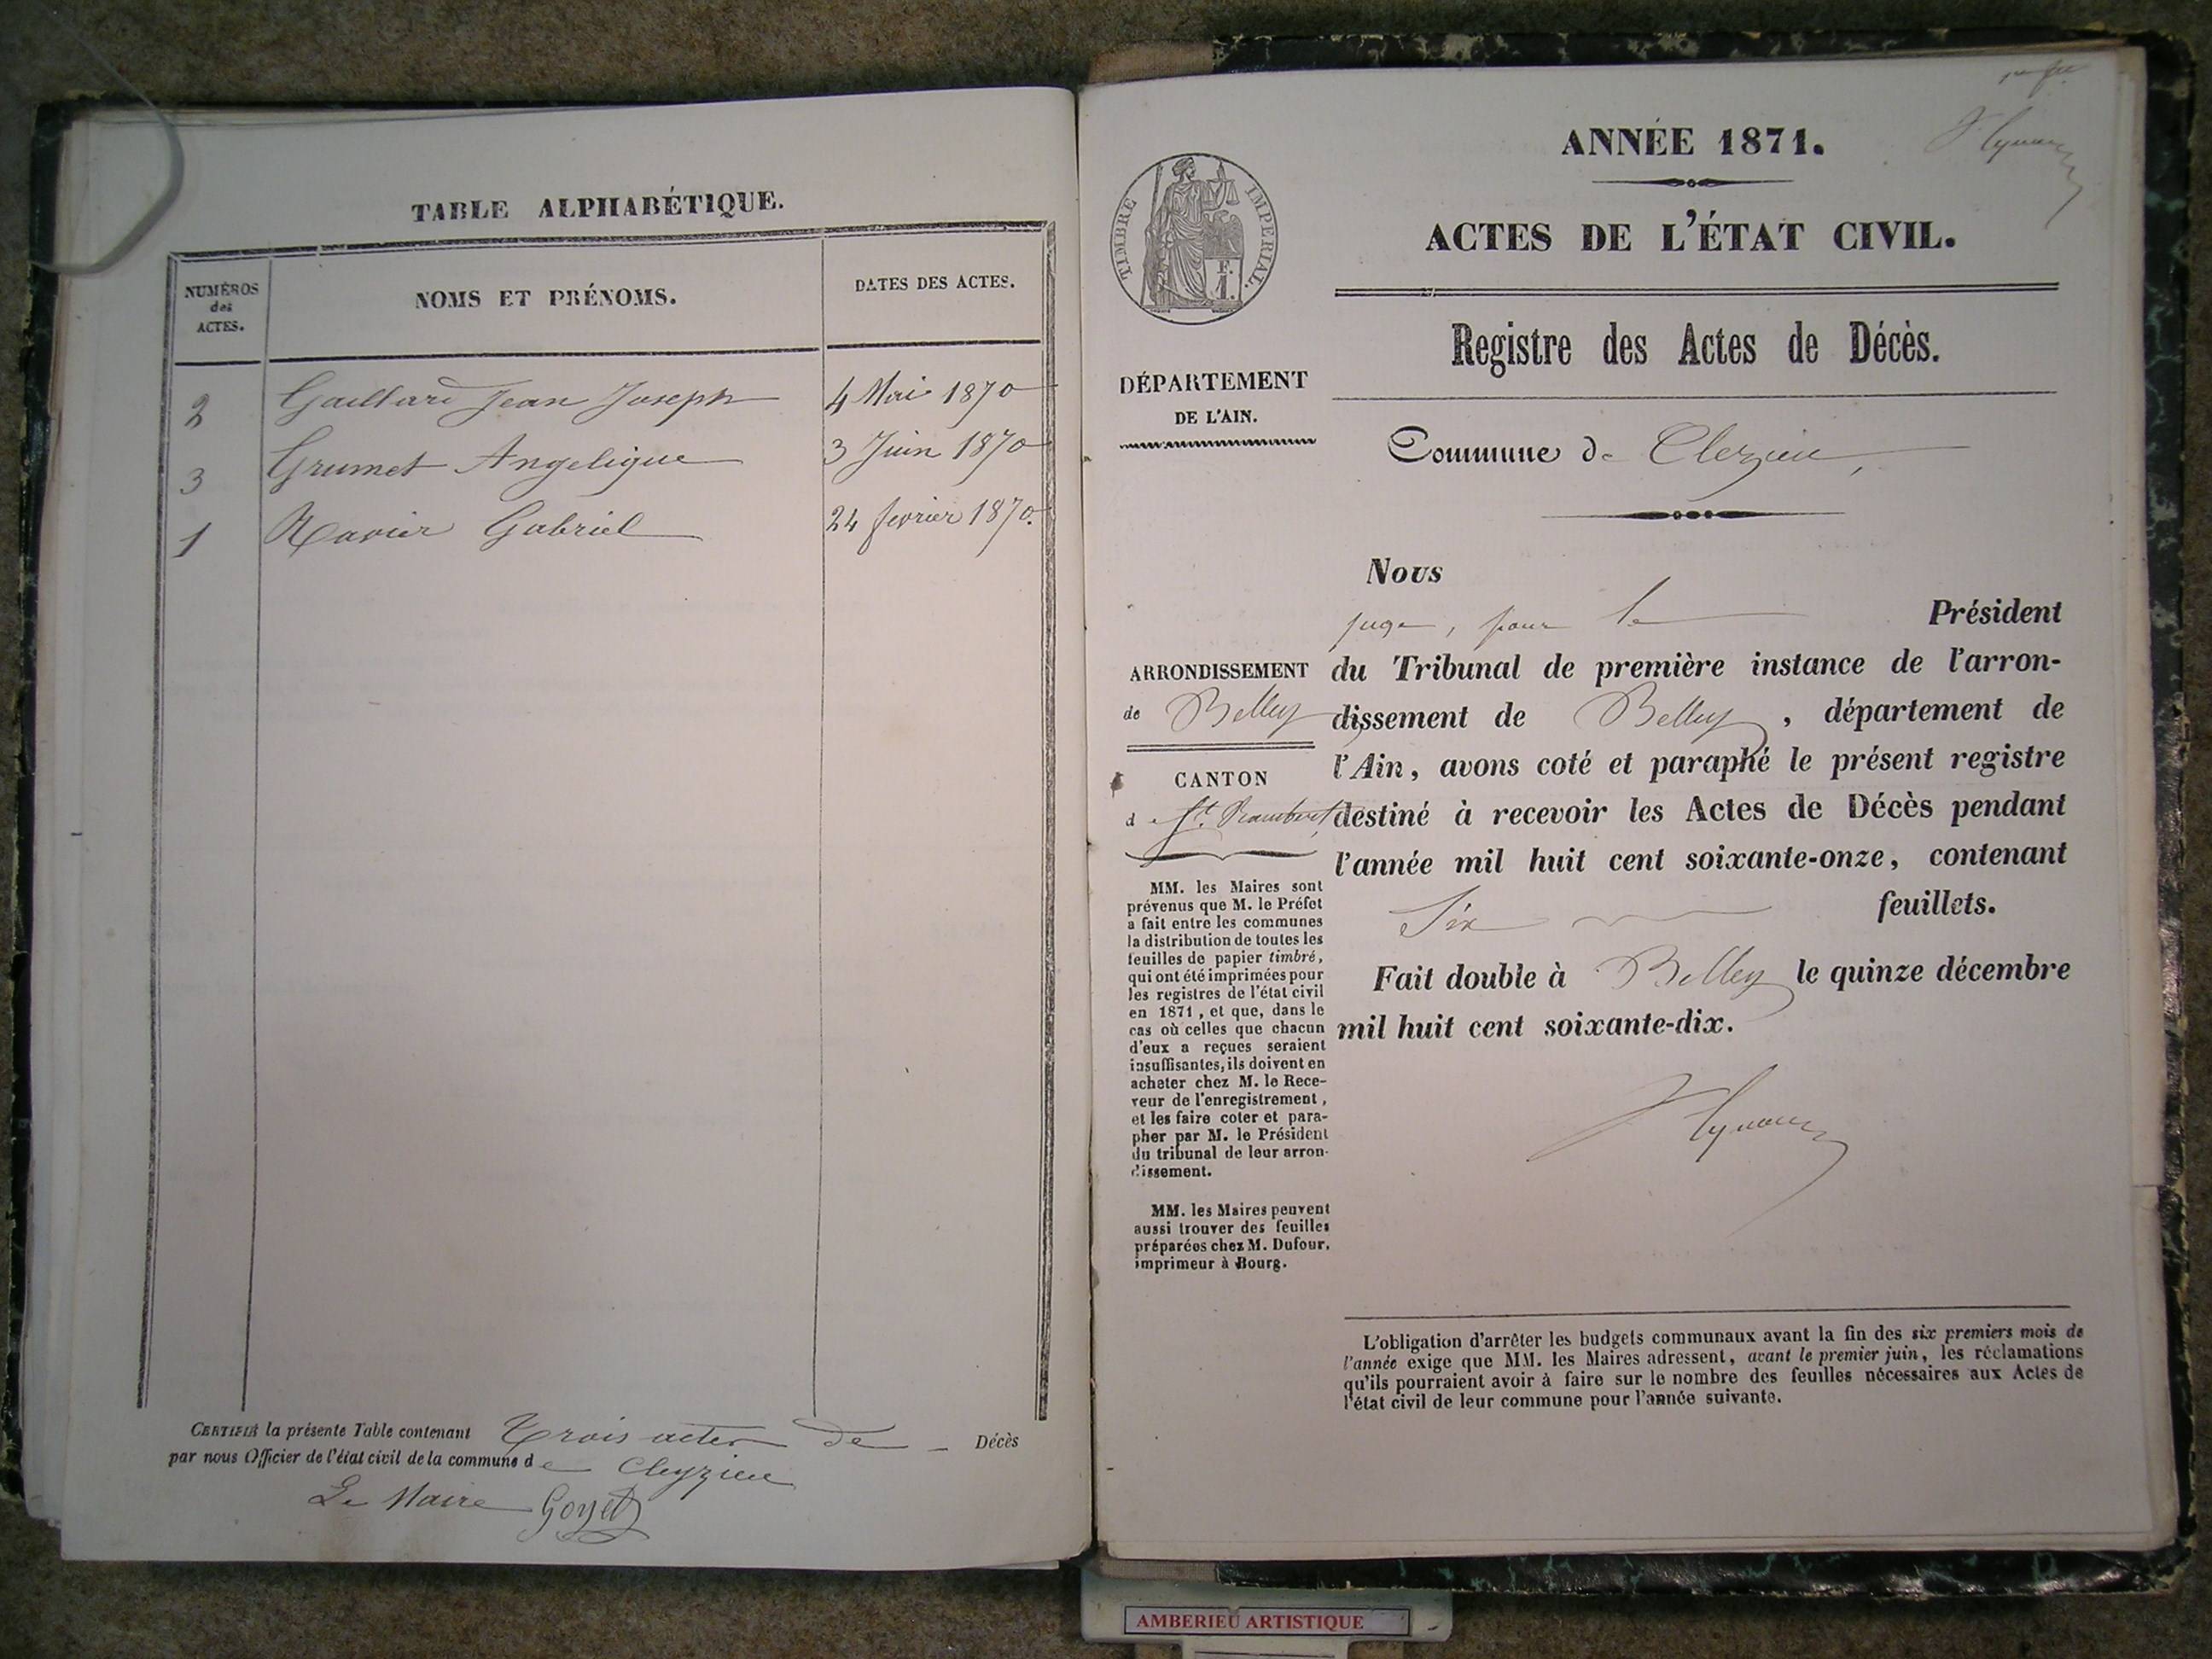 TABLE ALPHABÉTIQUE.
NUMÉROS
des
ACTES.
NOMS ET PRÉNOMS.
DATES DES ACTES.
2 Gaillard Jean Joseph 4 Mai 1870
3 Grumet Angelique 3 Juin 1870
1 Ravier Gabriel 24 fevrier 1870.
CERTIFIÉ la présente Table contenant trois actes de Décès
par nous Officier de l'état civil de la commune de Cleyzieu
Le Maire Goyet
1er fet
ANNÉE 1871.
ACTES DE L'ÉTAT CIVIL.
TIMBRE IMPERIAL.
F.
1.
Registre des Actes de Décès.
DÉPARTEMENT
DE L'AIN.
Commune de Clezieu,
ARRONDISSEMENT
de Belley
CANTON
de St. Rambert,
MM. les Maires sont
prévenus que M. le Préfet
a fait entre les communes
la distribution de toutes les
feuilles de papier timbré,
qui ont été imprimées pour
les registres de l'état civil
en 1871, et que, dans le
cas où celles que chacun
d'eux a reçues seraient
insuffisantes, ils doivent en
acheter chez M. le Rece-
veur de l'enregistrement,
et les faire coter et para-
pher par M. le Président
du tribunal de leur arron-
dissement.
MM. les Maires peuvent
aussi trouver des feuilles
préparées chez M. Dufour,
imprimeur à Bourg.
Nous
juge, pour le Président
du Tribunal de première instance de l'arron-
dissement de Belley, département de
l'Ain, avons coté et paraphé le présent registre
destiné à recevoir les Actes de Décès pendant
l'année mil huit cent soixante-onze, contenant
Six feuillets.
Fait double à Belley le quinze décembre
mil huit cent soixante-dix.
L'obligation d'arrêter les budgets communaux avant la fin des six premiers mois de
l'année exige que MM. les Maires adressent, avant le premier juin, les réclamations
qu'ils pourraient avoir à faire sur le nombre des feuilles nécessaires aux Actes de
l'état civil de leur commune pour l'année suivante.
AMBERIEU ARTISTIQUE